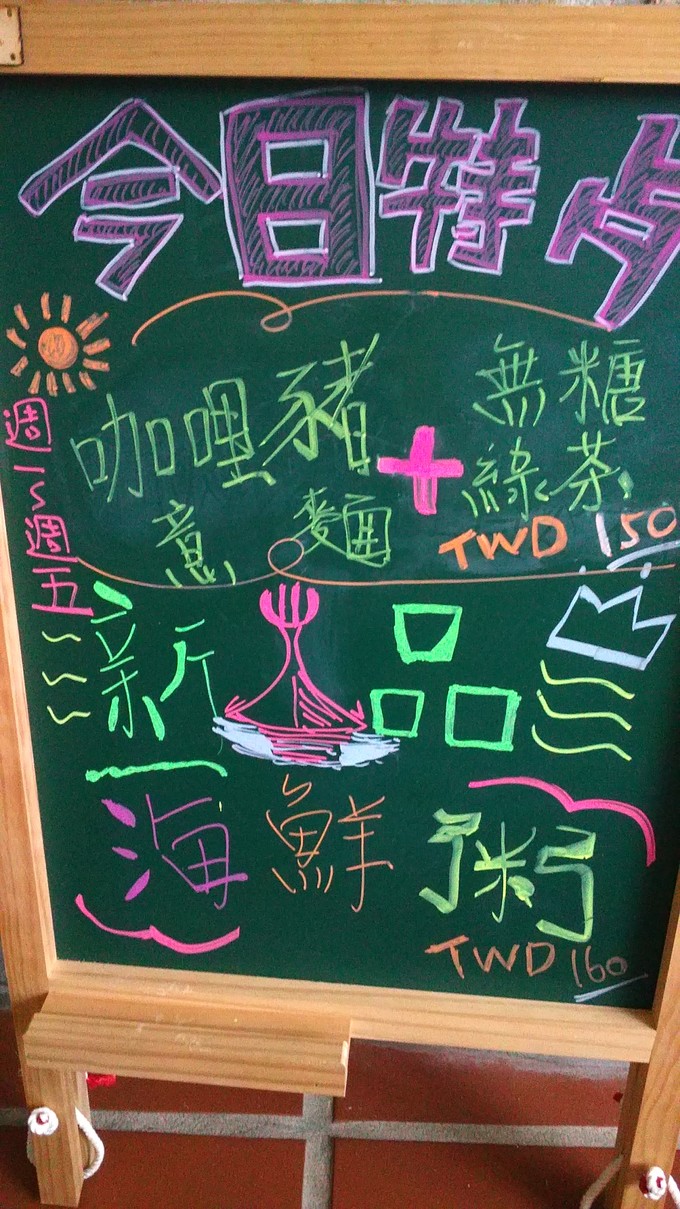 今日特
週一~週五
咖哩豬
意麵
+
無糖
綠茶
TWD 150
新品
海鮮粥
TWD 160